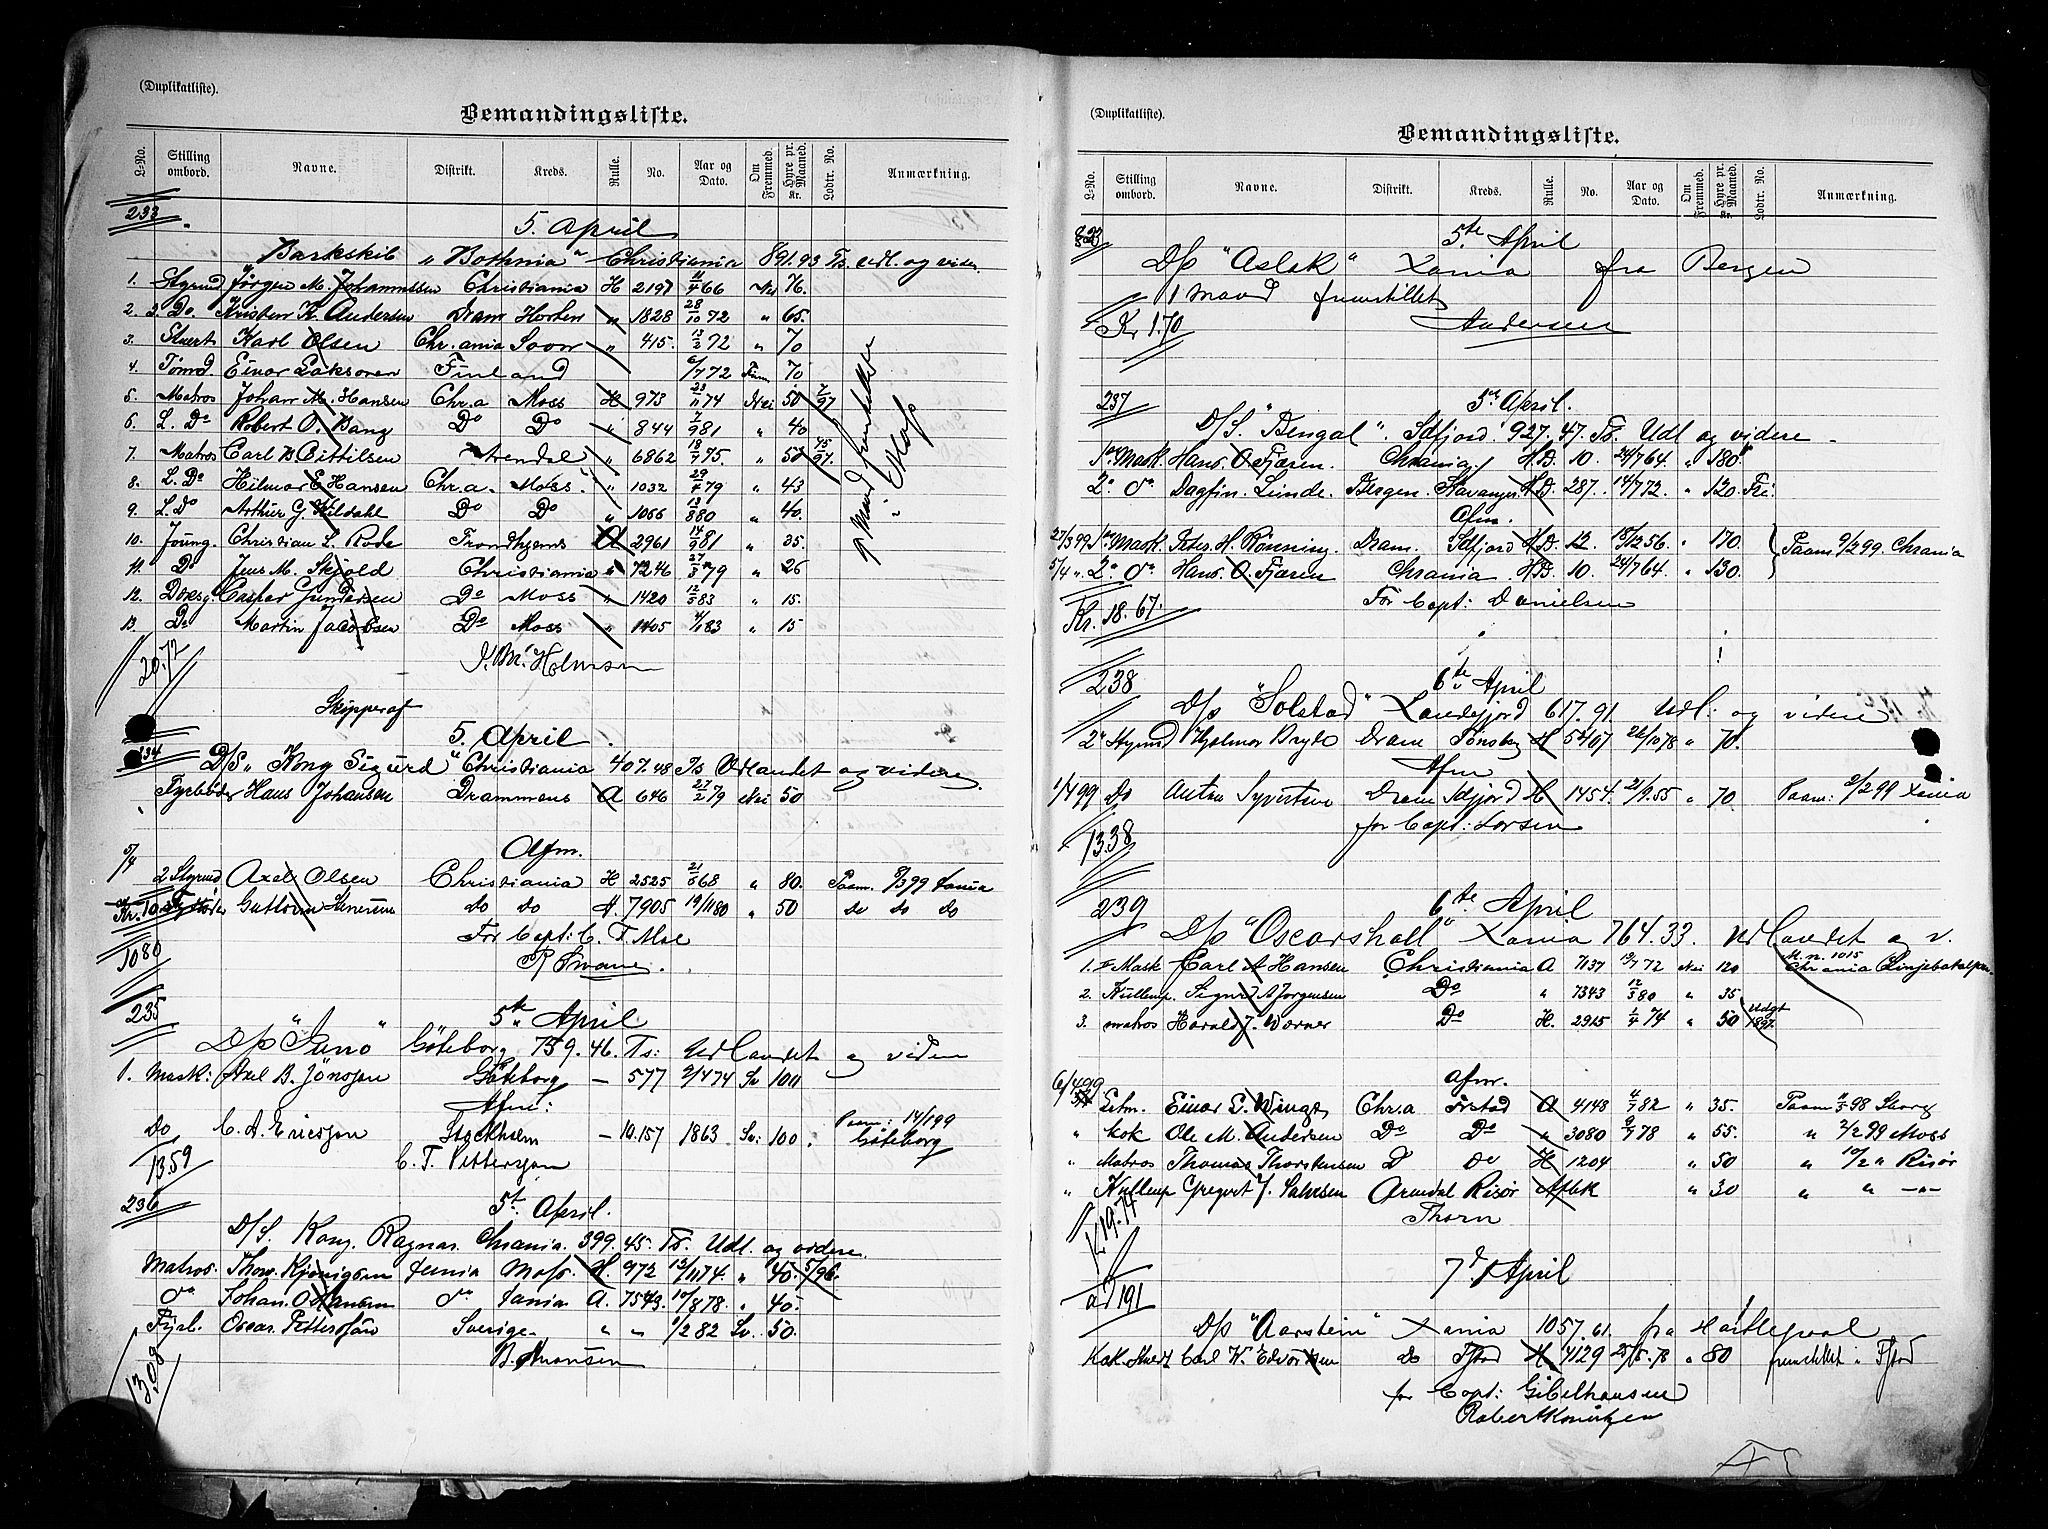 (Duplikatliste).
Bemandingsliste.
L-No. Stilling ombord. Navne. Distrikt. Kreds. Rulle. No. Aar og Dato. Om Fremmed. Hyre pr. Maaned. Kr. Lodtr. No. Anmærkning.
233 5. April
Barkskib "Bothnia" Christiania 891.93 Ts. Udl. og vider.
1. Styrmd Jørgen M. Johannessen Christiania H 2197 11/4 66 Nei 76.
2. 2. Do Kristen K. Andersen Dram Horten " 1828 28/10 72 " 65.
3. Stuert Karl Olsen Chr.ania " 415. 13/2 72 " 70
4. Tømd. Einar Finland 6/7 72 70
5. Matros Johan M. Hansen Chr.a Moss H 973 23/11 74 Nei 50 7/97
6. L. Do Robert O. Bang Do Do " 844 7/9 81 " 40
7. Matros Carl B Bittilsen Arendal " 6862 18/7 75. " 50 45/97.
8. L. Do Hilmar E Hansen Chr.a. Moss " 1032 79 " 43
9. L. Do Arthur G. Kildahl Do Do " 1066 13/8 80 " 40.
10. Joung. Christian S. Rode Trondhjems A 2961 14/9 81 " 35.
11. Do Jens M. Skjold Christiania " 7246 27/3 79 " 26
12. Dæksg. Caspar Gundersen Do Moss " 1420 12/5 83 " 15.
13. Do Martin Jacobsen Do Moss " 1405 4/1 83 " 15
9 Mand
20.72 J. M. Helmsen
Skipperaf
234 5. April
D/S "Kong Sigurd" Christiania 407.48 Ts Udlandet og videre.
Fyrbøder Hans Johansen Drammens A 646 27/2 79 Nei 50
5/4 Afm.
2 Styrmd Axel Olsen Christiania H 2525 21/6 68 " 80. Paam. 8/3 99 Xania
Guttorm do do A. 7905 19/11 80 " 50 do do do
For Capt: C. T. Moe
1080
235 5te April
D/S "Juno" Göteborg 759.46. Ts: Udlandet og viden
1. Mask: Axel B. Jönsson Göteborg — 577 2/4 74 Sv 100
Afm:
Do C. A. Ericsson Stockholm — 10.157 1863 Sv: 100. Paam: 14/1 99 Göteborg
13.59 C. T. Pettersson
236 5t. April.
D/S. Kong. Ragnar. Chrania. 399.45. Ts. Udl. og videre.
Matros. Thorv. Kjønigsen Xania Moss. H. 972 12/11 74. " 40. 5/96.
do Johan. O. Hansen do Xania A. 7549. 10/8 78. " 40.
Fyrb. Oscar. Pettersson Sverige. " " 1/2 82 Sv. 50.
1308
(Duplikatliste).
Bemandingsliste.
L-No. Stilling ombord. Navne. Distrikt. Kreds. Rulle. No. Aar og Dato. Om Fremmed. Hyre pr. Maaned. Kr. Lodtr. No. Anmærkning.
5te April
D/S "Aslak" Xania fra Bergen
1 Mand fremstillet
Kr 1.70 Andersen
237 5te April.
D/S. "Bengal". Sdfjord. 927.47. Ts. Udl og videre.
1ste Mask. Hans. O. Fjæren. Chrania. H.D. 10. 24/7 64. " 180
2. do Dagfin. Linde. Bergen. Stavanger H.D. 287. 14/7 72. " 120.
Afm.
27/3 99 1ste Mask. Peter. H. Rønning. Dram. Sdfjord H.D. 12. 18/12 56. " 170. Paam 9/2 99. Chrania
5/4 ". 2. do Hans. O. Fjæren Chrania. H.D. 10. 24/7 64. " 130.
For Capt: Danielsen
Kr. 18.67.
238 6te April
D/S "Solstad" Sandefjord 617.91. Udl: og videre
2. Styrmd Hjalmar Bryde Dram Tønsberg H 5407 26/10 78 " 70.
Afm
1/4 99 Do Anton Syvertsen Dram Sdfjord H 1454. 21/9.55 " 70. Paam: 2/2 99 Xania
for Capt: Larsen
13.38
239 6te April
D/S "Oscarshall" Xania 764.33. Udlandet og v.
1. F Mask Carl A Hansen Christiania A 7137 13/7 72 Nei 120 M. n. 1015 Chrania Linjebataljon.
2. Kullemp. Sigurd A Jørgensen Do " 7343 12/3 80 " 35
3. matros Harald J. Werner Do H. 2925 1/4 74 " 50 Udgt 1897.
6/4 99 Afm.
Letm. Einar E. Winge Chr.a Frstad A 4148 4/7 82 " 35. Paam 11/3 98 Sborg
" Kok Ole M. Andersen Do Do " 3080 9/7 78 " 55. " 2/2 99 Moss
" Matros Thomas Thorstensen D Do H 1204 " 50 " 10/2 " Risør
" Kullemp Gregert J. Salvesen Arendal Risør Afbk " 30 " " —"—
Thorn
K 19.74
ad 191 7de April
D/S "Aarstein" Xania 1057.61. fra Hartlepool
Kok. Stuert Carl W. Edvardsen do Fstad H. 4129 " 80 fremstillet i Fstad
for Capt: Gibelhausen
Robert Knudtzen